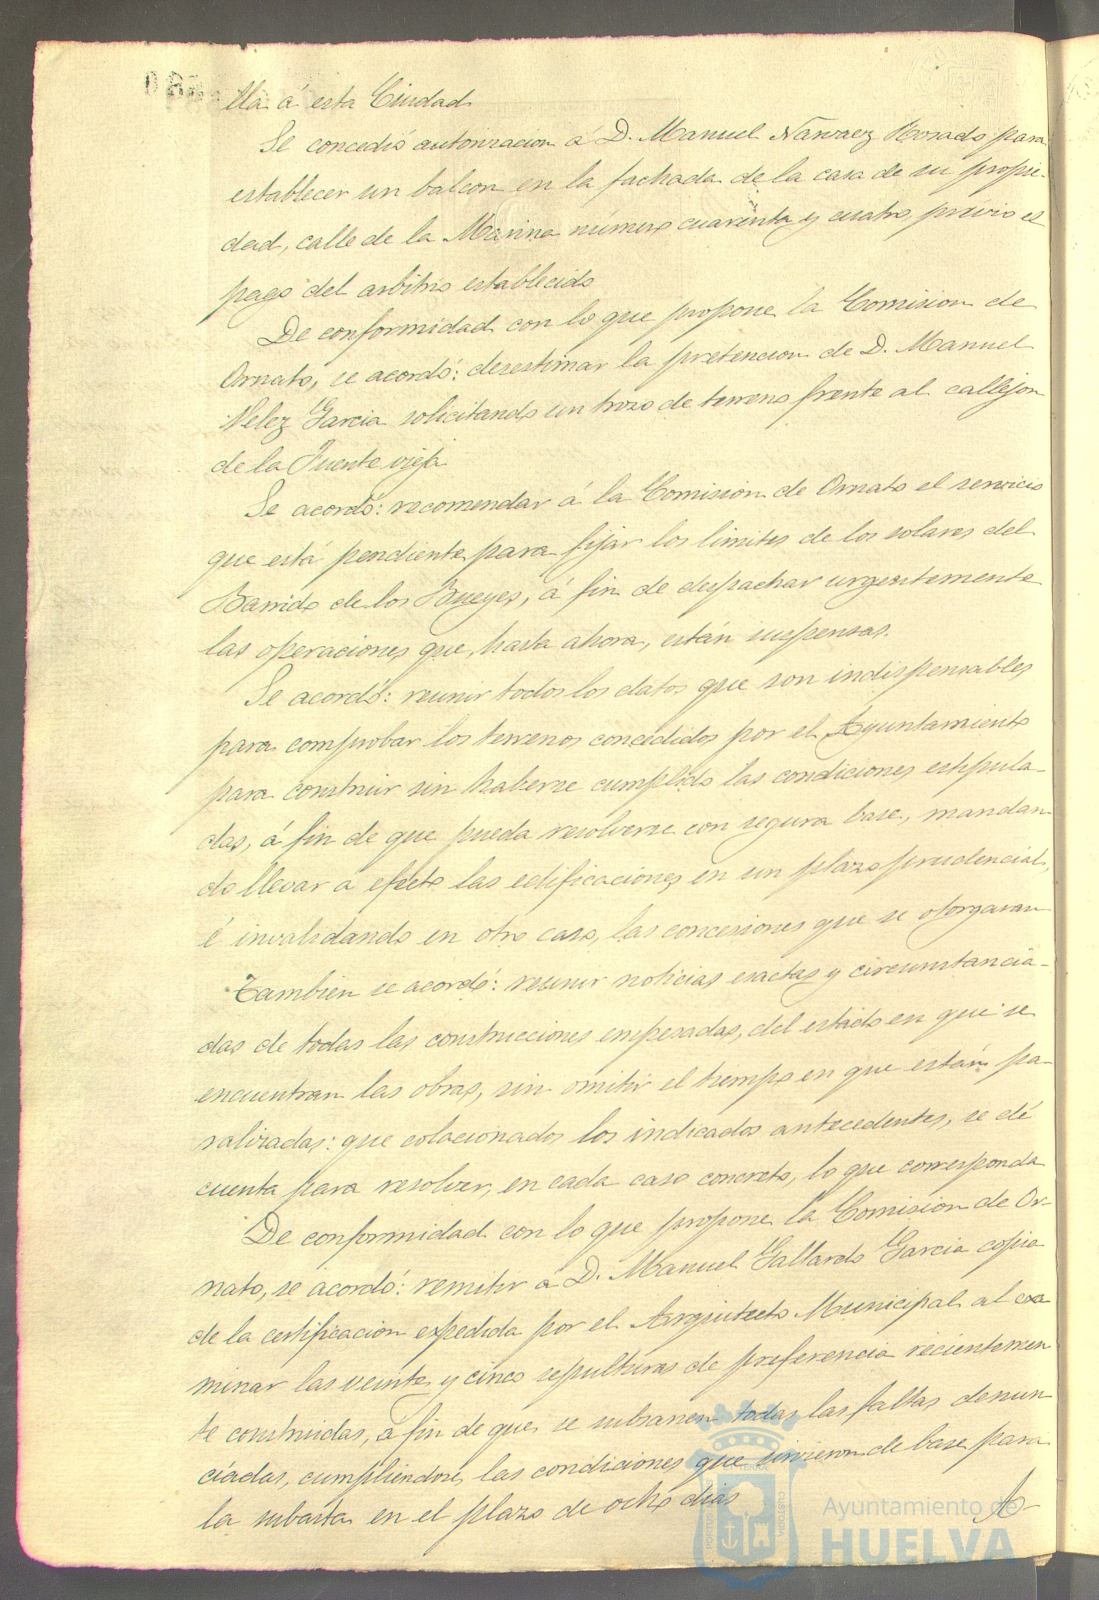 lla á esta Ciudad.
Se concedió autorizacion á D. Manuel Narvaez Rosado para
establecer un balcon en la fachada de la casa de su propie-
dad, calle de la Marina número cuarenta y cuatro, prévio el
pago del arbitrio establecido
De conformidad con lo que propone la Comision de
Ornato, se acordó: desestimar la pretencion de D. Manuel
Velez Garcia solicitando un trozo de terreno frente al callejon
de la Fuente vieja.
Se acordó: recomendar á la Comision de Ornato el servicio
que esta pendiente para fijar los limites de los solares del
Barrido de los Bueyes, á fin de despachar urgentemente
las operaciones que, hasta ahora, están suspensas.
Se acordó: reunir todos los datos que son indispensables
para comprobar los terrenos concedidos por el Ayuntamiento
para construir sin haberse cumplido las condiciones estipula-
das, á fin de que pueda resolverse con segura base, mandan-
do llevar a efecto las edificaciones en un plazo prudencial,
é invalidando en otro caso, las concesiones que se otorgaran
Tambien se acordó: reunir noticias exactas y circunstancia-
das de todas las construcciones empezadas, del estado en que se
encuentran las obras, sin omitir el tiempo en que están pa-
ralizadas: que colacionados los indicados antecedentes, se dé
cuenta para resolver, en cada caso concreto, lo que corresponda
De conformidad con lo que propone la Comision de Or-
nato, se acordó: remitir á D. Manuel Gallardo Garcia copia
de la certificacion expedida por el Arquitecto Municipal al exa
minar las veinte y cinco sepulturas de preferencia recientemen
te construidas, á fin de que se subsanen todas las faltas denun
ciadas, cumpliendose las condiciones que sirvieron de base para
la subasta en el plazo de ocho dias
Ayuntamiento de
HUELVA